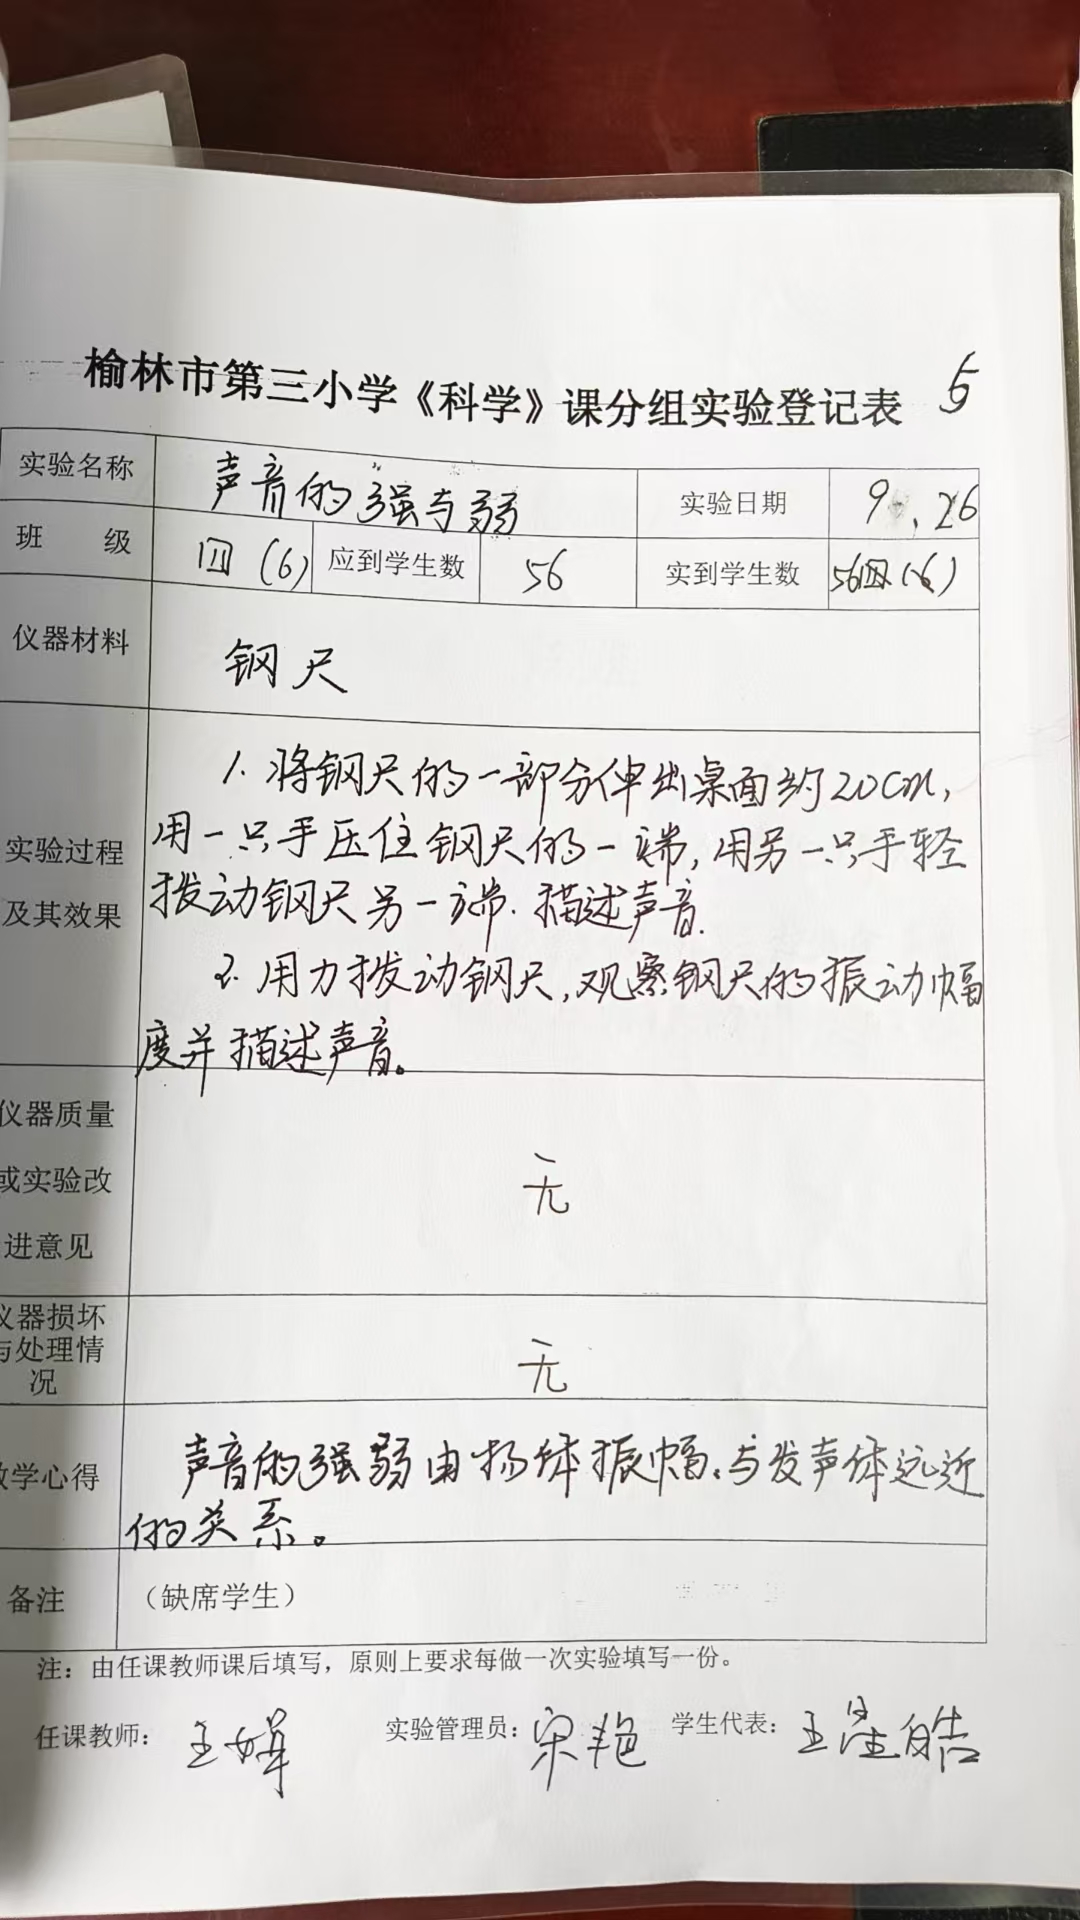 榆林市第三小学《科学》课分组实验登记表 5
实验名称 声音的强与弱 实验日期 9.26
班 级 四(6) 应到学生数 56 实到学生数 56
仪器材料 钢尺
1.将钢尺的一部分伸出桌面约20cm,
用一只手压住钢尺的一端,用另一只手轻
实验过程
拨动钢尺另一端.描述声音.
及其效果
2.用力拨动钢尺,观察钢尺的振动幅
度并描述声音。
仪器质量
或实验改
进意见
无
仪器损坏
与处理情
况
无
教学心得
声音的强弱由物体振幅、与发声体远近
的关系。
备注 (缺席学生)
注:由任课教师课后填写,原则上要求每做一次实验填写一份。
任课教师: 王婵 实验管理员: 宋艳 学生代表: 王星皓